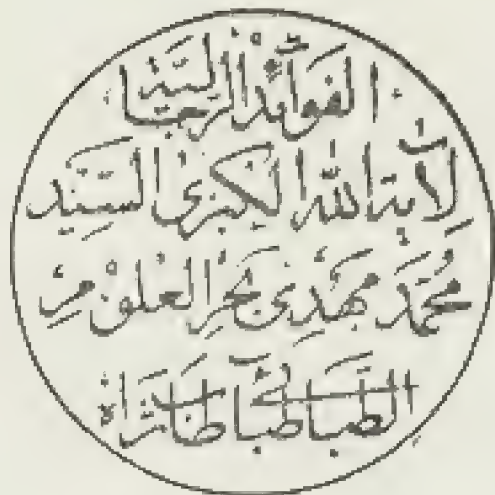 الفَوائِدُ الرِّجَالِيَّة
لِآيَةِ اللهِ الكُبْرَى السَّيِّد
مُحَمَّد مَهْدِي بَحْرِ العُلُوْمِ
الطَّبَاطَبَائِي طَابَ ثَرَاهُ